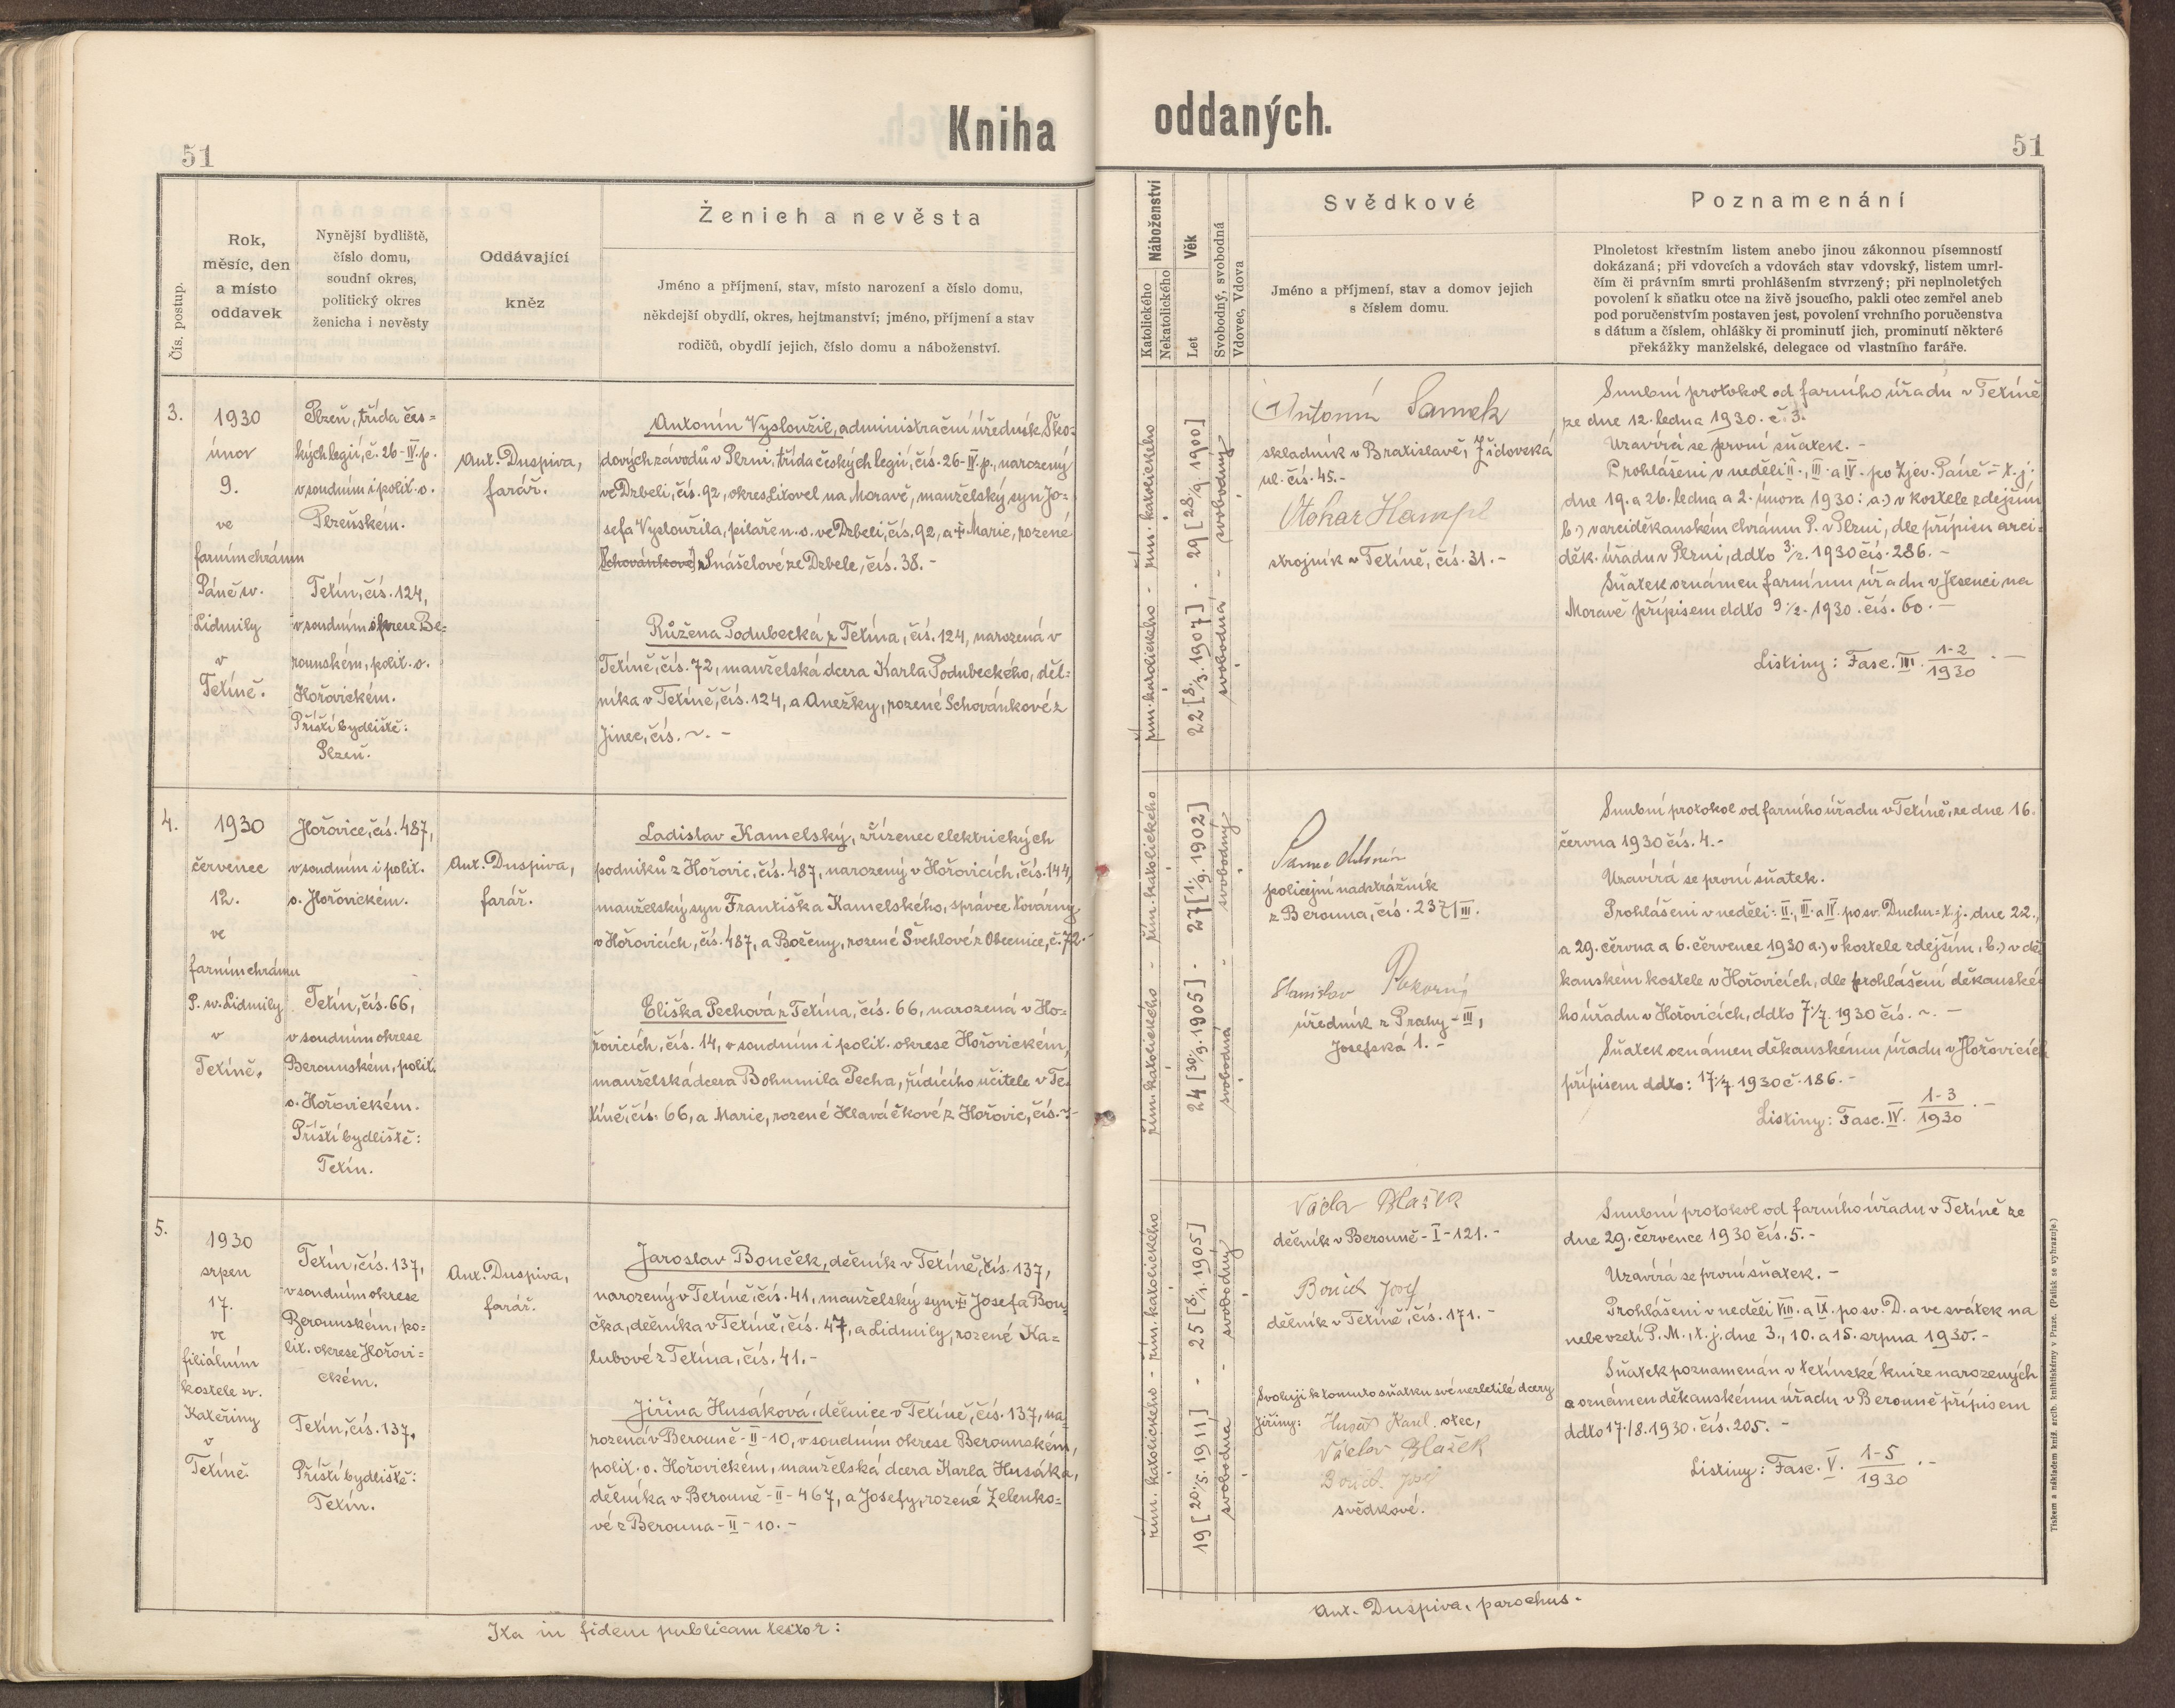 51
Kniha
Čís. postup.
Rok,
měsíc, den
a místo
oddavek
Nynější bydliště,
číslo domu,
soudní okres,
politický okres
ženicha i nevěsty
Oddávající
kněz
Ženich a nevěsta
Jméno a příjmení, stav, místo narození a číslo domu,
někdejší obydlí, okres, hejtmanství; jméno, příjmení a stav
rodičů, obydlí jejich, číslo domu a náboženství.
3.
1930
únor
9.
ve
farním chrámu
Páně sv.
Lidmily
v
Tetíně.
Plzeň, třída čes=
kých legií, č. 26-IV. p.
v soudním i polit. o.
Plzeňském.
Tetín, čís. 124,
v soudním okrese Be=
rounském, polit. o.
Hořovickém.
Příští bydliště:
Plzeň.
Ant. Duspiva,
farář.
Antonín Vysloužil, administrační úředník Ško=
dových závodů v Plzni, třída českých legií, čís. 26-IV. p., narozený
ve Drbeli, čís. 92, okres Litovel na Moravě, manželský syn Jo=
sefa Vysloužila, pilaře n. o. ve Drbeli, čís. 92, a † Marie, rozené
Schovánkové z Snášelové ze Drbele, čís. 38. -
Růžena Podubecká z Tetína, čís. 124, narozená v
Tetíně, čís. 72, manželská dcera Karla Podubeckého, děl=
níka v Tetíně, čís. 124, a Anežky, rozené Schovánkové z
Jinec, čís. ~. -
4.
1930
červenec
12.
ve
farním chrámu
P. sv. Lidmily
v
Tetíně.
Hořovice, čís. 487,
v soudním i polit.
o. Hořovickém.
Tetín, čís. 66,
v soudním okrese
Berounském, polit.
o. Hořovickém.
Příští bydliště:
Tetín.
Ant. Duspiva,
farář.
Ladislav Kamelský, zřízenec elektrických
podniků z Hořovic, čís. 487, narozený v Hořovicích, čís. 144,
manželský syn Františka Kamelského, správce továrny
v Hořovicích, čís. 487, a Boženy, rozené Švehlové z Obecnice, č. 72. -
Eliška Pechová z Tetína, čís. 66, narozená v Ho=
řovicích, čís. 14, v soudním i polit. okrese Hořovickém,
manželská dcera Bohumila Pecha, řídícího učitele v Te=
tíně, čís. 66, a Marie, rozené Hlaváčkové z Hořovic, čís. ~. -
5.
1930
srpen
17.
ve
filiálním
kostele sv.
Kateřiny
v
Tetíně.
Tetín, čís. 137,
v soudním okrese
Berounském, po=
lit. okrese Hořovi=
ckém.
Tetín, čís. 137.
Příští bydliště:
Tetín.
Ant. Duspiva,
farář.
Jaroslav Bouček, dělník v Tetíně, čís. 137,
narozený v Tetíně, čís. 41, manželský syn † Josefa Bou=
čka, dělníka v Tetíně, čís. 47, a Lidmily, rozené Ka=
lubové z Tetína, čís. 41. -
Jiřina Husáková, dělnice v Tetíně, čís. 137, na=
rozená v Berouně - II - 10, v soudním okrese Berounském,
polit. o. Hořovickém, manželská dcera Karla Husáka,
dělníka v Berouně - II - 467, a Josefy, rozené Zelenko=
vé z Berouna - II - 10. -
Ita in fidem publicam testor:
oddaných.
51
Náboženství
Katolického
Nekatolického
Věk
Let
Svobodný, svobodná
Vdovec, Vdova
Svědkové
Jméno a příjmení, stav a domov jejich
s číslem domu.
Poznamenání
Plnoletost křestním listem anebo jinou zákonnou písemností
dokázaná; při vdovcích a vdovách stav vdovský, listem umrl-
čím či právním smrti prohlášením stvrzený; při neplnoletých
povolení k sňatku otce na živě jsoucího, pakli otec zemřel aneb
pod poručenstvím postaven jest, povolení vrchního poručenstva
s dátum a číslem, ohlášky či prominutí jich, prominutí některé
překážky manželské, delegace od vlastního faráře.
řím. katolického - řím. katolického
22 [8./3. 1907] - 29 [28./9. 1900]
svobodná - svobodný
Antonín Samek
skladník v Bratislavě, Židovská
ul. čís. 45. -
Otokar Hampl
strojník v Tetíně, čís. 31. -
Snubní protokol od farního úřadu v Tetíně
ze dne 12. ledna 1930. č. 3.
Uzavírá se první sňatek. -
Prohlášeni v neděli II., III. a IV. po Zjev. Páně = t. j.
dne 19. a 26. ledna a 2. února 1930: a.) v kostele zdejším
b.) v arciděkanském chrámu P. v Plzni, dle přípisu arci=
děk. úřadu v Plzni, ddto 3./2. 1930 čís. 286. -
Sňatek oznámen farnímu úřadu v Jesenci na
Moravě přípisem ddto 9./2. 1930. čís. 60. -
Listiny: Fasc. III. 1-2/1930 . -
řím. katolického - řím. katolického
24 [30./9. 1905] - 27 [1./9. 1902]
svobodná - svobodný
policejní nadstrážník
z Berouna, čís. 237/III.
Stanislav Pokorný
úředník z Prahy - III,
Josefská 1. -
Snubní protokol od farního úřadu v Tetíně, ze dne 16.
června 1930 čís. 4. -
Uzavírá se první sňatek.
Prohlášeni v neděli: II., III. a IV. po sv. Duchu = t. j. dne 22.,
a 29. června a 6. července 1930 a.) v kostele zdejším, b.) v dě=
kanském kostele v Hořovicích, dle prohlášení děkanské=
ho úřadu v Hořovicích, ddto 7./7. 1930 čís. ~. -
Sňatek oznámen děkanskému úřadu v Hořovicích
přípisem ddto: 17./7. 1930 č. 186. -
Listiny: Fasc. IV. 1-3/1930 . -
řím. katolického - řím. katolického
19 [20./5. 1911] - 25 [8./1. 1905]
svobodná - svobodný
Václav Blažek
dělník v Berouně - I - 121. -
Bouček Josef
dělník v Tetíně, čís. 171. -
Svoluji k tomuto sňatku své nezletilé dcery
Jiřiny: Husák Karel, otec,
Václav Blažek
Bouček Josef
svědkové.
Snubní protokol od farního úřadu v Tetíně ze
dne 29. července 1930 čís. 5. -
Uzavírá se první sňatek. -
Prohlášeni v neděli VIII. a IX. po sv. D. a ve svátek na
nebevzetí P. M., t. j. dne 3., 10. a 15. srpna 1930. -
Sňatek poznamenán v tetínské knize narozených
a oznámen děkanskému úřadu v Berouně přípisem
ddto 17./8. 1930. čís. 205. -
Listiny: Fasc. V. 1-5/1930 . -
Ant. Duspiva, parochus.
Tiskem a nákladem kníž. arcib. knihtiskárny v Praze. (Patisk se vyhrazuje.)